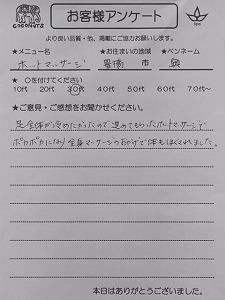 COCONUTS
お客様アンケート
より良い品質・他、掲載にご協力お願いします。
★メニュー名 ★お住まいの地域 ★ペンネーム
ホットマッサージ 豊橋 市
★ ○を付けてください
10代 20代 30代 40代 50代 60代 70代～
★ご意見・ご感想をお聞かせください。
足全体が冷めたかったので進めてもらったホットマッサージで
ポカポカになり全身マッサージのおかげで体もほぐれました。
本日はありがとうございました。